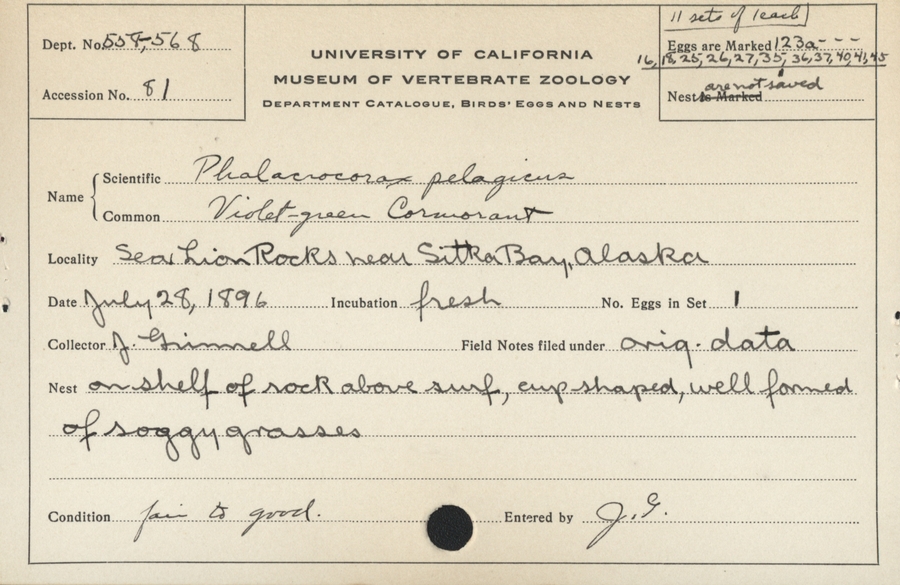 11 sets of 1 each
Dept. No. 558-568
Eggs are Marked 123a - - -
16, 18, 25, 26, 27, 35, 36, 37, 40, 41, 45
UNIVERSITY OF CALIFORNIA
MUSEUM OF VERTEBRATE ZOOLOGY
DEPARTMENT CATALOGUE, BIRDS' EGGS AND NESTS
Accession No. 81
are not saved
Nest is Marked
Name
Scientific Phalacrocorax pelagicus
Common Violet-green Cormorant
Locality Sea Lion Rocks near Sitka Bay, Alaska
Date July 28, 1896 Incubation fresh No. Eggs in Set 1
Collector J. Grinnell Field Notes filed under orig. data
Nest on shelf of rock above surf, cup shaped, well formed
of soggy grasses
Condition fair to good. Entered by J.G.